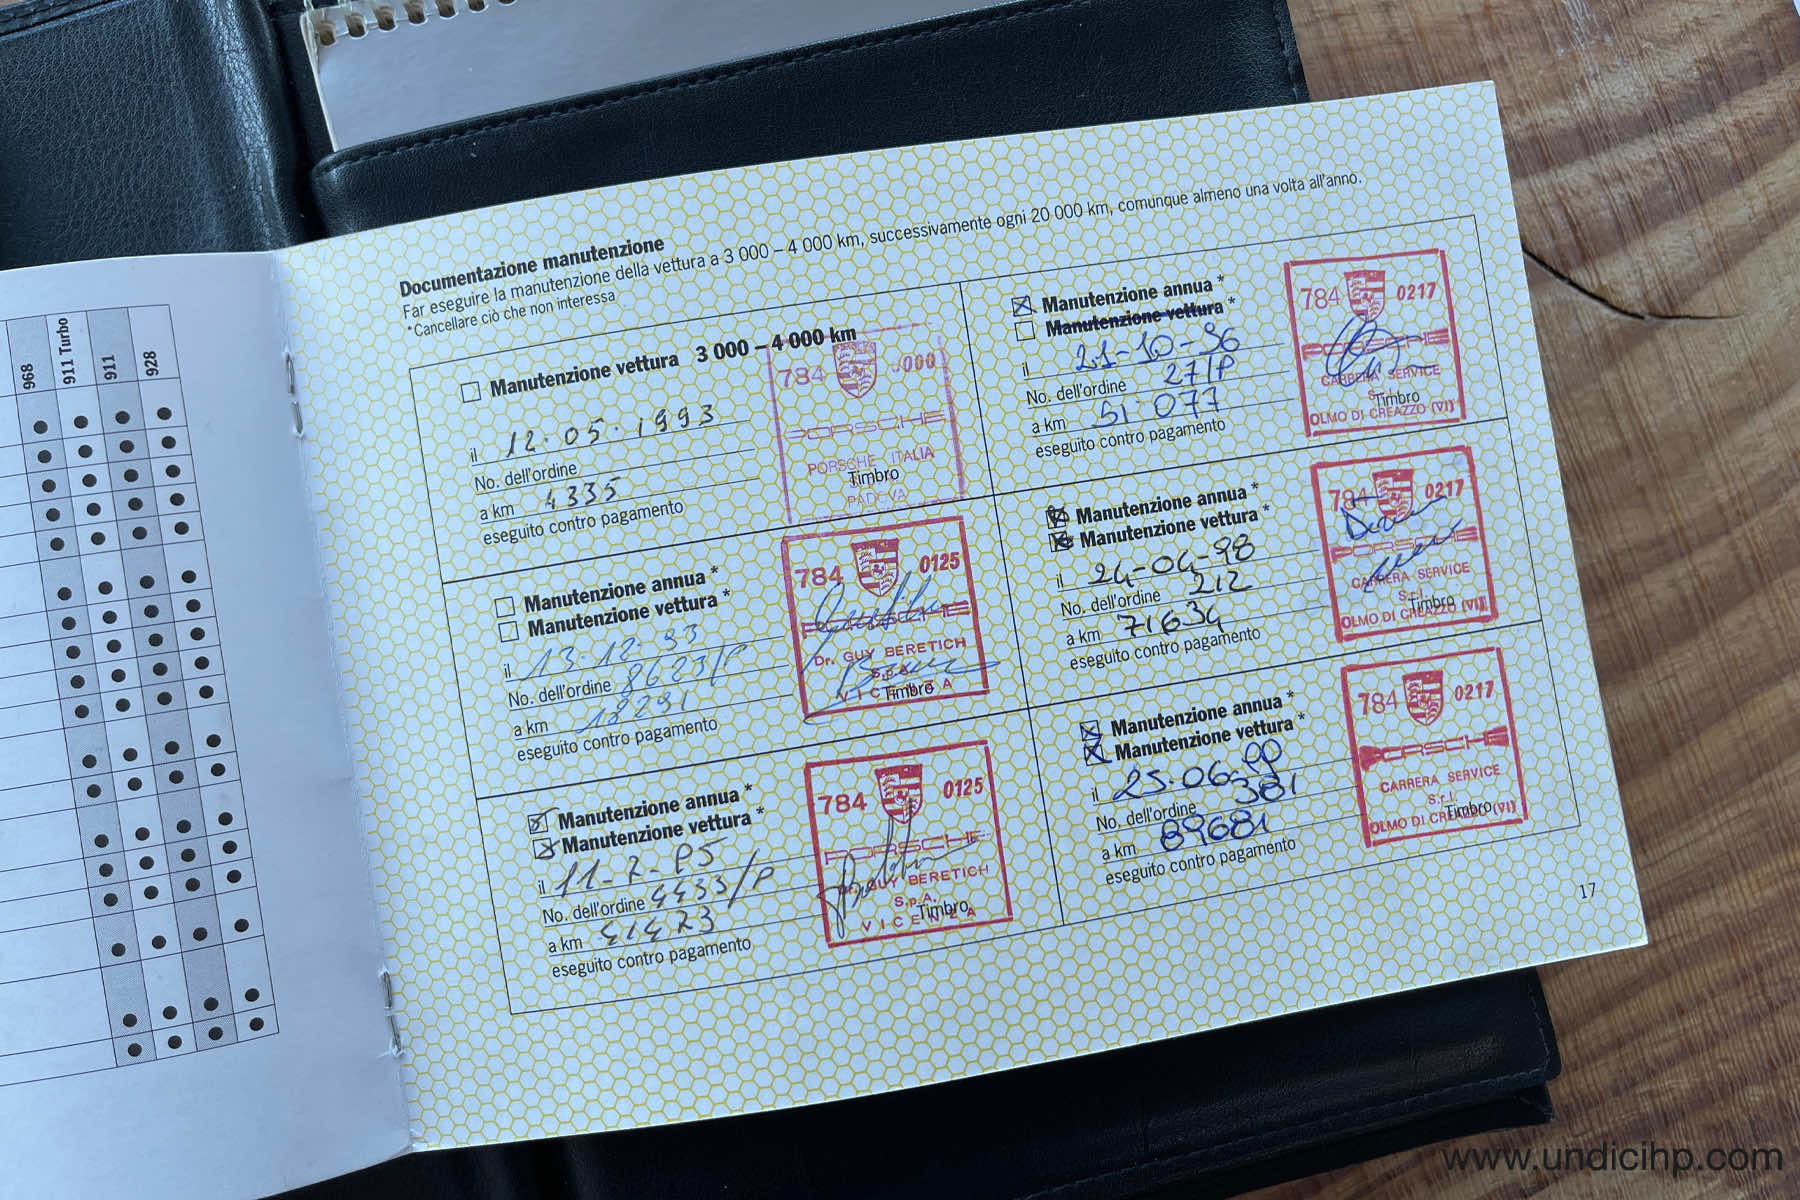 968
911 Turbo
911
928
Documentazione manutenzione
Far eseguire la manutenzione della vettura a 3 000 – 4 000 km, successivamente ogni 20 000 km, comunque almeno una volta all'anno.
*Cancellare ciò che non interessa
Manutenzione vettura 3 000 – 4 000 km
il 12.05.1993
No. dell'ordine
a km 4335
eseguito contro pagamento
784 000
PORSCHE
PORSCHE ITALIA
Timbro
PADOVA
Manutenzione annua *
Manutenzione vettura *
il 13.12.93
No. dell'ordine 8623/P
a km 18291
eseguito contro pagamento
784 0125
PORSCHE
Dr. GUY BERETICH
S.p.A.
VICENZA
Timbro
Manutenzione annua *
Manutenzione vettura *
il 11-7-95
No. dell'ordine 4433/P
a km 41473
eseguito contro pagamento
784 0125
PORSCHE
Dr. GUY BERETICH
S.p.A.
VICENZA
Timbro
Manutenzione annua *
Manutenzione vettura *
il 21-10-96
No. dell'ordine 27/P
a km 51.077
eseguito contro pagamento
784 0217
PORSCHE
CARRERA SERVICE
Timbro
OLMO DI CREAZZO (VI)
Manutenzione annua *
Manutenzione vettura *
il 24-04-98
No. dell'ordine 212
a km 71634
eseguito contro pagamento
784 0217
PORSCHE
CARRERA SERVICE
S.r.l.
Timbro
OLMO DI CREAZZO (VI)
Manutenzione annua *
Manutenzione vettura *
il 25.06.00
No. dell'ordine 381
a km 89681
eseguito contro pagamento
784 0217
PORSCHE
CARRERA SERVICE
S.r.l.
Timbro
OLMO DI CREAZZO (VI)
17
www.undicihp.com